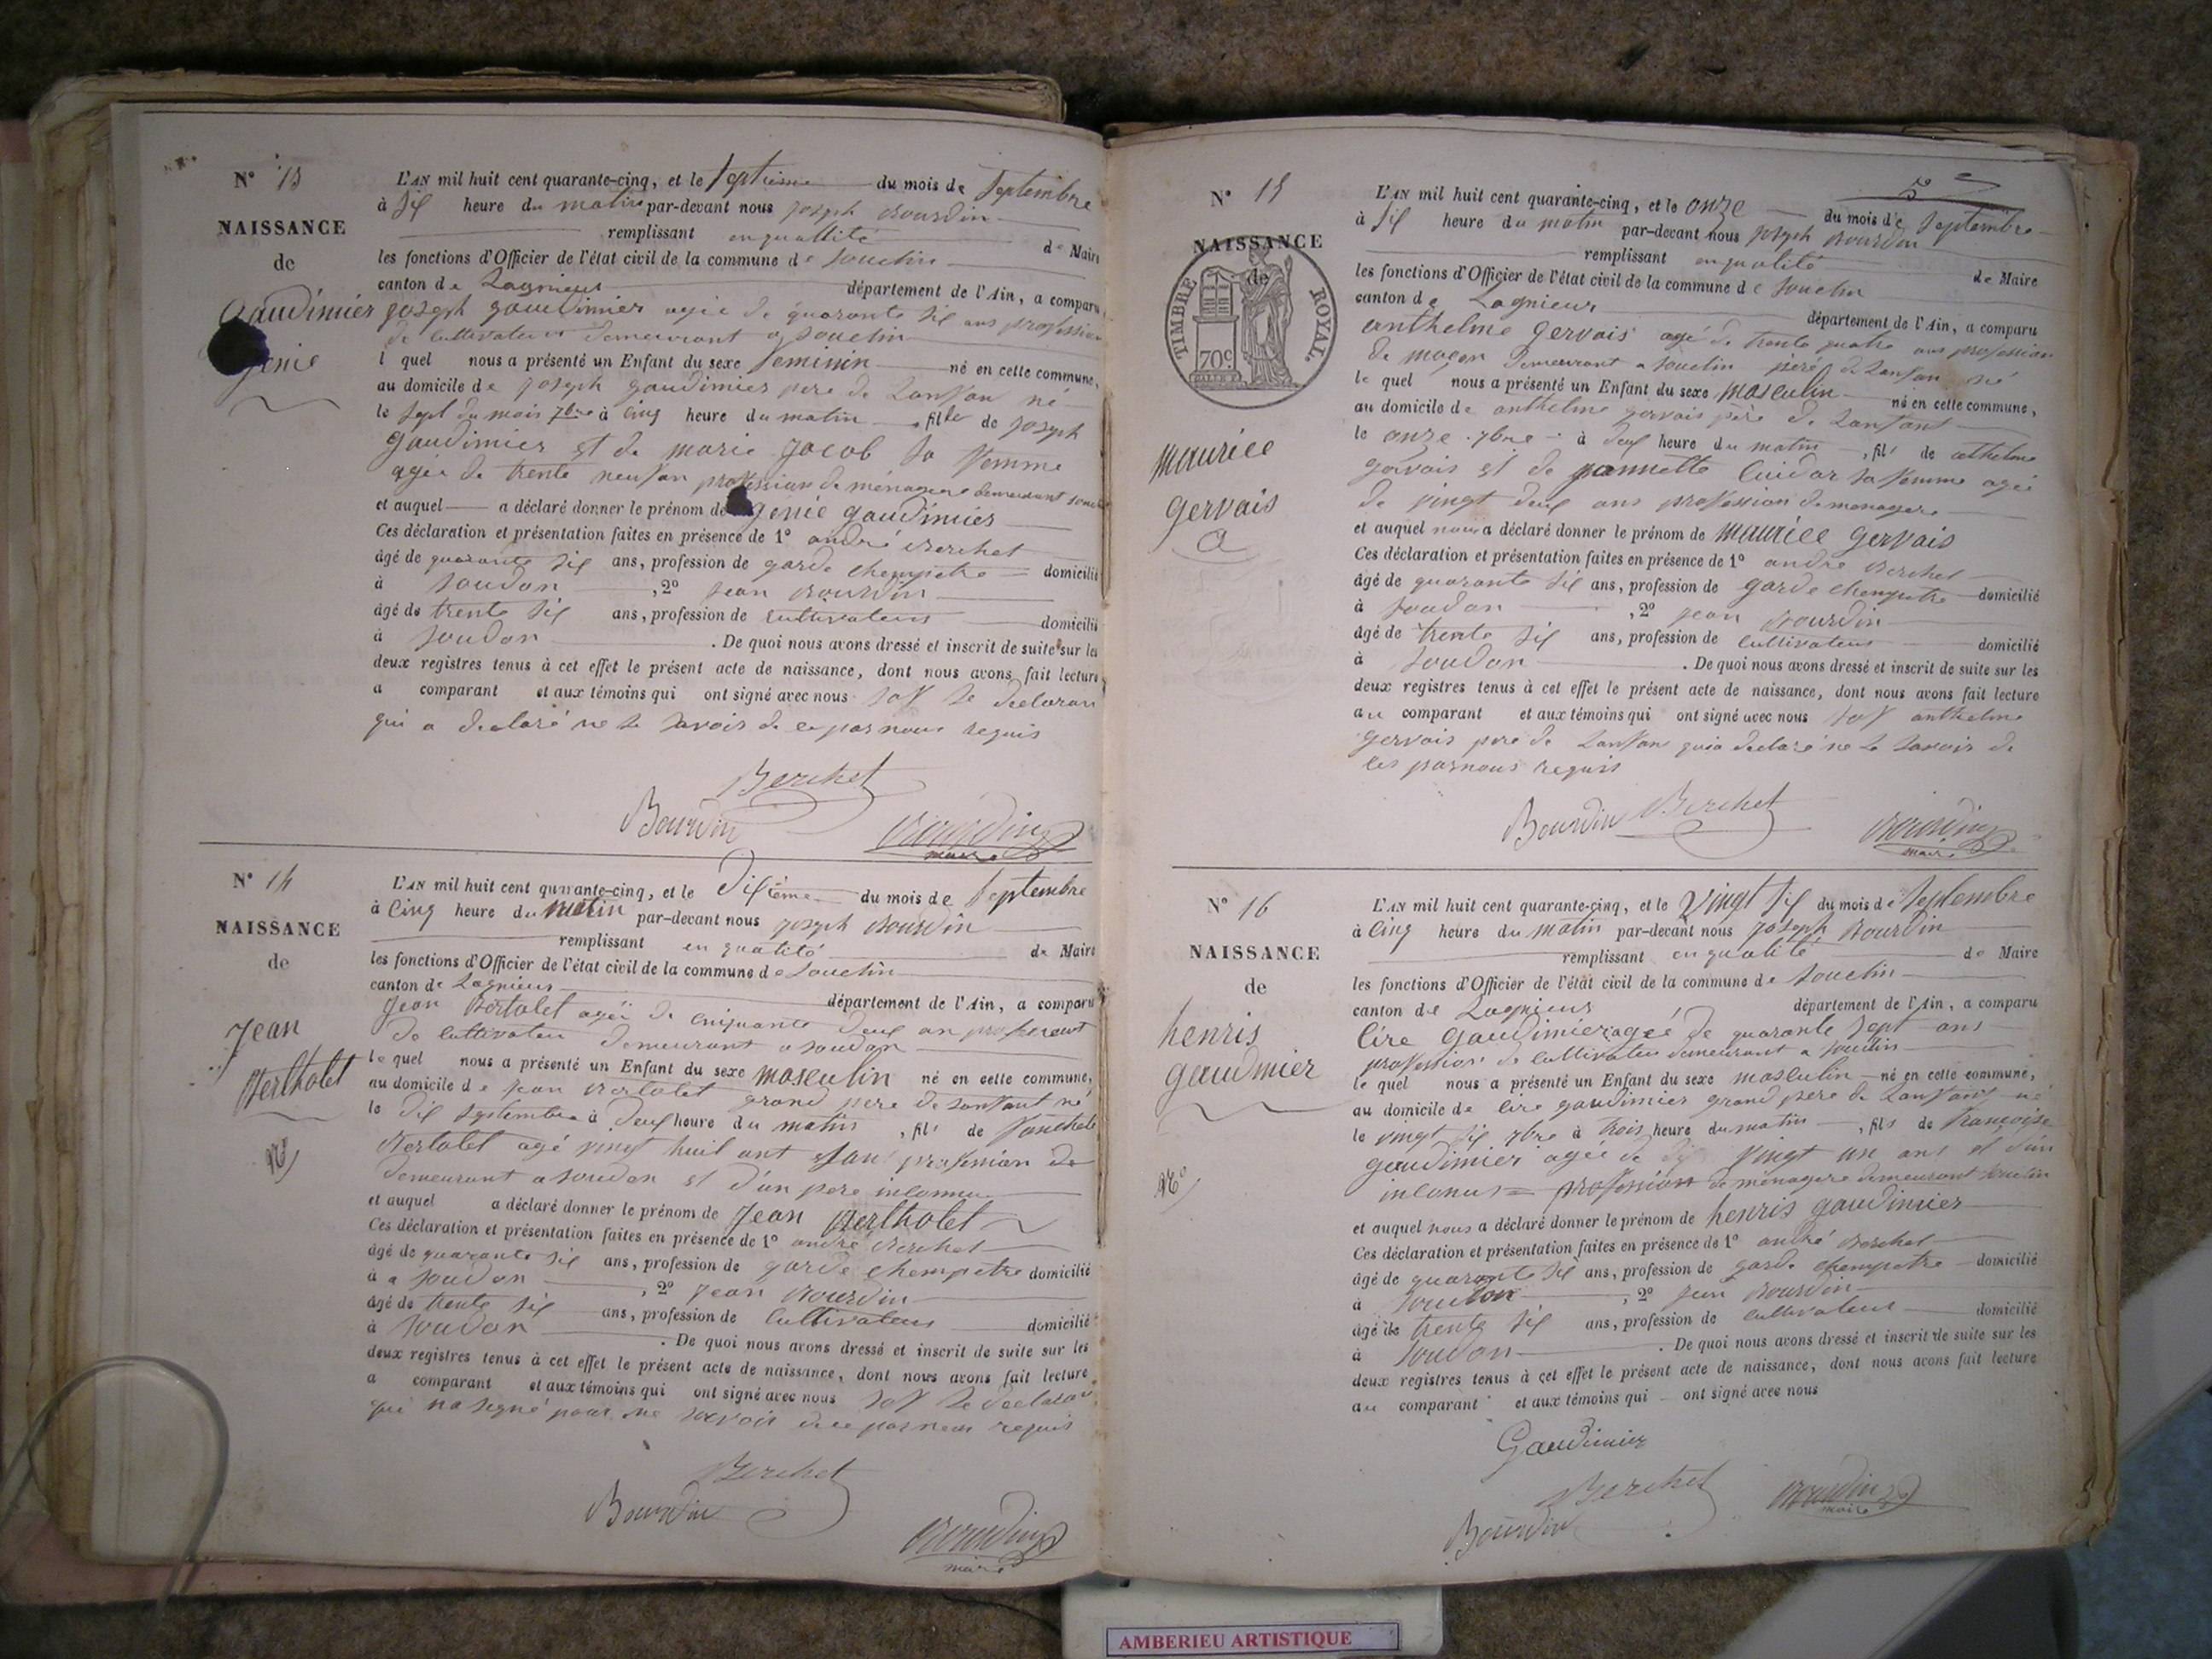 N° 13
NAISSANCE
de
Gaudimier
génie
L'AN mil huit cent quarante-cinq, et le septieme du mois de septembre
à six heure du matin par-devant nous joseph Bourdin
remplissant en quallité de Maire
les fonctions d'Officier de l'état civil de la commune de souclin
canton de Lagnieux département de l'Ain, a comparu
joseph gaudimier agée de quarante six ans profession
de cultivateur demeurant a souclin
l quel nous a présenté un Enfant du sexe feminin né en cette commune,
au domicile de joseph gaudimier pere de Lanfan né
le sept du mois 7bre à cinq heure du matin fille de joseph
gaudimier et de marie jacob sa femme
agée de trente neuf an profession de ménagere demeurant
et auquel a déclaré donner le prénom de génie gaudimier
Ces déclaration et présentation faites en présence de 1° andré Berchet
âgé de quarante six ans, profession de garde chempetre domicilié
à soudon , 2° jean Bourdin
âgé de trente six ans, profession de cultivateur domicilié
à soudon . De quoi nous avons dressé et inscrit de suite sur les
deux registres tenus à cet effet le présent acte de naissance, dont nous avons fait lecture
a comparant et aux témoins qui ont signé avec nous sof le declaran
qui a declaré ne le savoir de ce par nous requis
Berchet
Bourdin
Bourdin
maire
N° 14
NAISSANCE
de
Jean
Bertholet
L'AN mil huit cent quarante-cinq, et le dixième du mois de septembre
à cinq heure du matin par-devant nous joseph Bourdin
remplissant en qualité de Maire
les fonctions d'Officier de l'état civil de la commune de souclin
canton de Lagnieux département de l'Ain, a comparu
Jean Bertolet agée de cinquante deux an
de cultivateur demeurant a soudon
le quel nous a présenté un Enfant du sexe masculin né en cette commune,
au domicile de jean Bertolet grand pere de Lanfant né
le dix septembre à deux heure du matin , fils de
Bertolet agé vingt huit ant profession de
demeurant a soudon et d'un pere inconnu
et auquel a déclaré donner le prénom de Jean Bertholet
Ces déclaration et présentation faites en présence de 1° andré Berchet
âgé de quarante six ans, profession de garde chempetre domicilié
à a soudon , 2° jean Bourdin
âgé de trente six ans, profession de cultivateur domicilié
à soudon . De quoi nous avons dressé et inscrit de suite sur les
deux registres tenus à cet effet le présent acte de naissance, dont nous avons fait lecture
a comparant et aux témoins qui ont signé avec nous sof le declaran
qui na signé pour ne savoir de ce par nous requis
Berchet
Bourdin
Bourdin
maire
5
N° 15
NAISSANCE
de
TIMBRE ROYAL.
70c
maurice
gervais
L'AN mil huit cent quarante-cinq, et le onze du mois de septembre
à six heure du matin par-devant nous joseph Bourdin
remplissant en qualité de Maire
les fonctions d'Officier de l'état civil de la commune de souclin
canton de Lagnieux département de l'Ain, a comparu
anthelme gervais agé de trente quatre ans profession
de maçon demeurant a souclin péré de Lanfan né
le quel nous a présenté un Enfant du sexe masculin né en cette commune,
au domicile de anthelme gervais père de Lanfant
le onze 7bre à deux heure du matin , fils de athelme
gervais et de jannette Cuidar sa femme agée
de vingt deux ans profession de menagere
et auquel nous a déclaré donner le prénom de maurice gervais
Ces déclaration et présentation faites en présence de 1° andré Berchet
âgé de quarante six ans, profession de garde chempetre domicilié
à soudon , 2° jean Bourdin
âgé de trente six ans, profession de cultivateur domicilié
à soudon . De quoi nous avons dressé et inscrit de suite sur les
deux registres tenus à cet effet le présent acte de naissance, dont nous avons fait lecture
au comparant et aux témoins qui ont signé avec nous sof anthelme
gervais pere de Lanfan qui a declaré ne le savoir de
ces par nous requis
Bourdin Berchet
Bourdin
maire
N° 16
NAISSANCE
de
henris
gaudimier
L'AN mil huit cent quarante-cinq, et le vingt six du mois de septembre
à cinq heure du matin par-devant nous joseph Bourdin
remplissant en qualité de Maire
les fonctions d'Officier de l'état civil de la commune de souclin
canton de Lagnieux département de l'Ain, a comparu
cire gaudimier agée de quarante sept ans
profession de cultivateur demeurant a souclin
le quel nous a présenté un Enfant du sexe masculin né en cette commune,
au domicile de cire gaudimier grand pere de Lanfant né
le vingt six 7bre à trois heure du matin , fils de françoise
gaudimier agée de vingt un ans et d'un
inconus = profession de ménagere demeurant souclin
et auquel nous a déclaré donner le prénom de henris gaudimier
Ces déclaration et présentation faites en présence de 1° andré Berchet
âgé de quarante six ans, profession de garde chempetre domicilié
à soudon , 2° jean Bourdin
âgé de trente six ans, profession de cultivateur domicilié
à soudon . De quoi nous avons dressé et inscrit de suite sur les
deux registres tenus à cet effet le présent acte de naissance, dont nous avons fait lecture
au comparant et aux témoins qui ont signé avec nous
Gaudimier
Berchet
Bourdin
Bourdin
maire
AMBERIEU ARTISTIQUE